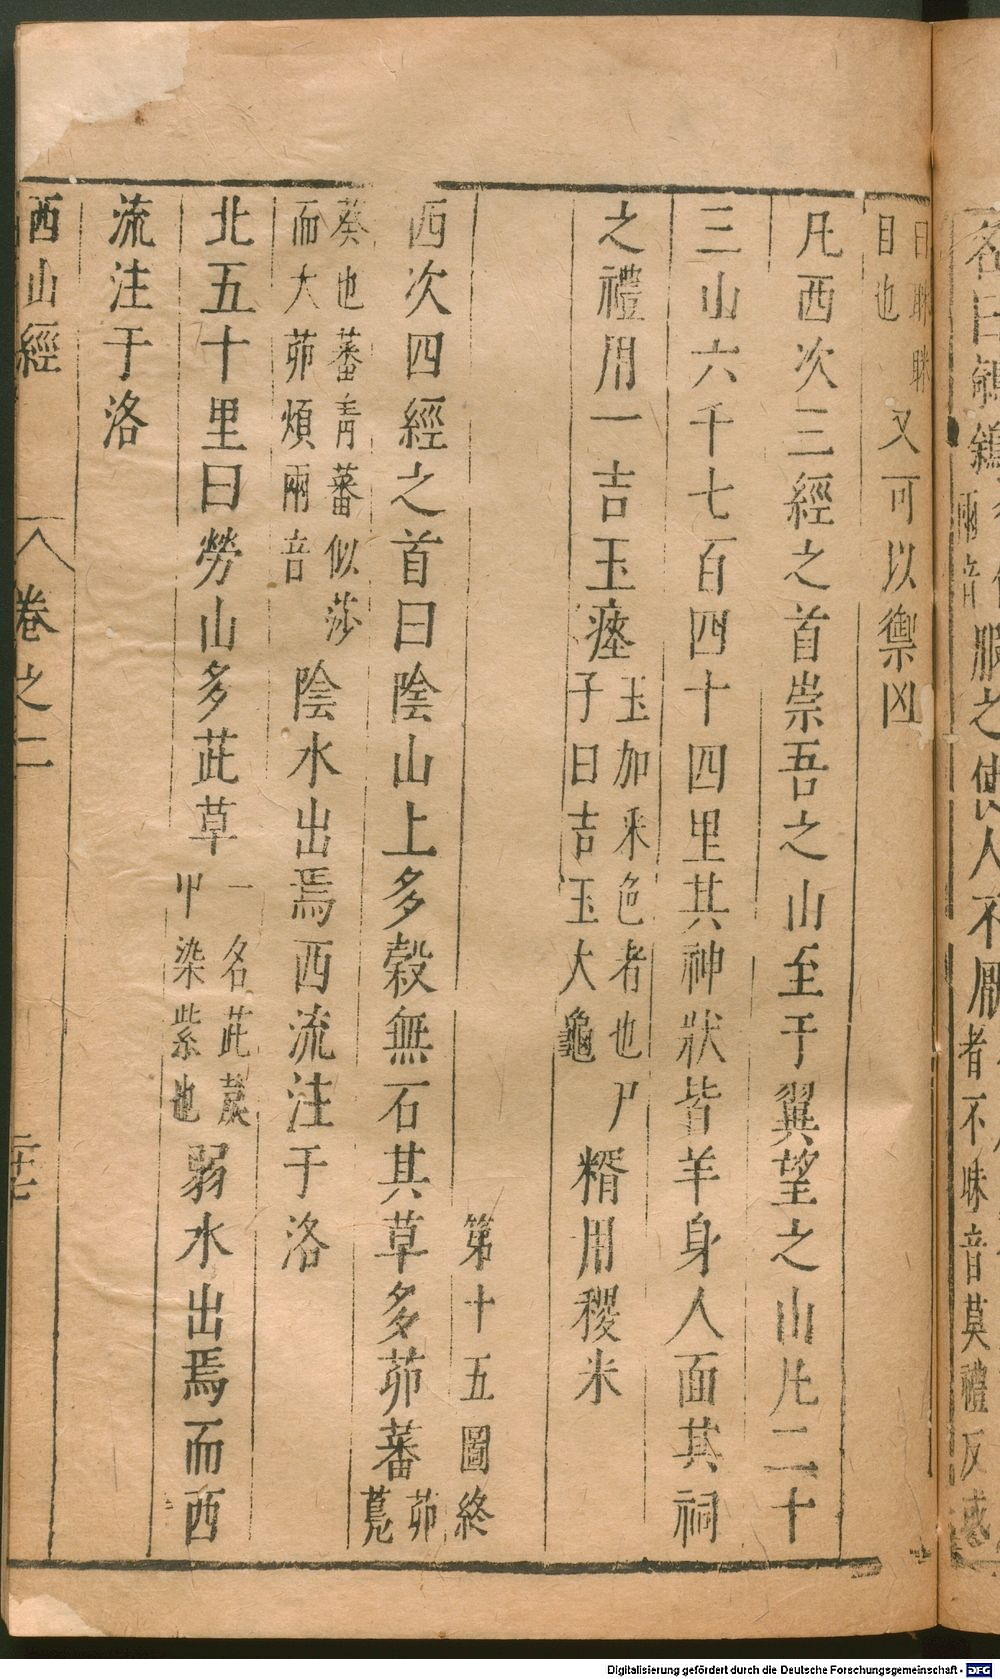 目也又可以禦凶
凡西次三經之首崇吾之山至于翼望之山凡二十
三山六千七百四十四里其神狀皆羊身人面其祠
之禮用一吉玉瘞玉加采色者也尸子曰吉玉大龜糈用稷米
第十五圖終
西次四經之首曰陰山上多榖無石其草多茆蕃茆鳧
葵也蕃青蕃似莎而大茆煩兩音陰水出焉西流注于洛
北五十里曰勞山多茈草一名茈䓞中染紫也弱水出焉而西
流注于洛
西山經 卷之二
Digitalisierung gefördert durch die Deutsche Forschungsgemeinschaft - DFG